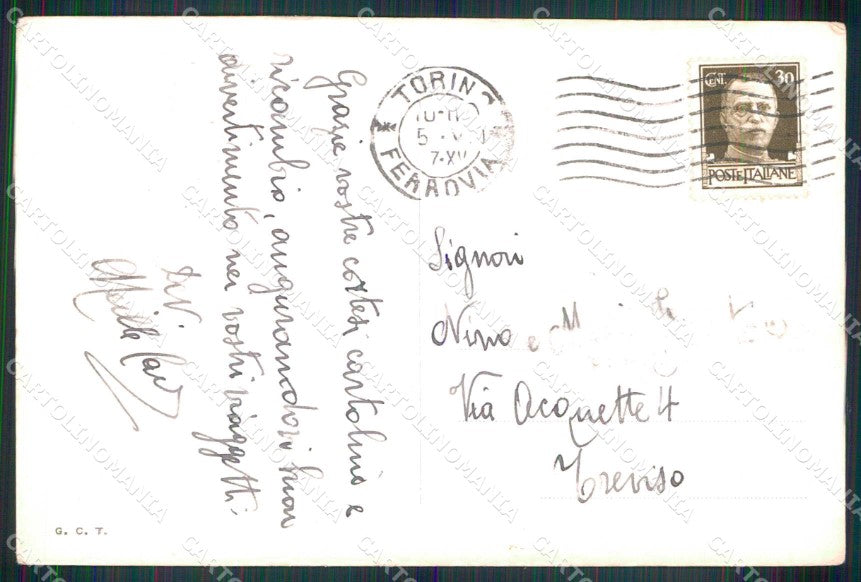 Grazie vostre cortesi cartoline e
ricambio, augurandovi buon
divertimento nei vostri viaggetti.
TORINO
FERROVIA
CENT. 30
POSTE ITALIANE
Signori
Nino e
Via Acquette 4
Treviso
G. C. T.
CARTOLINOMANIA